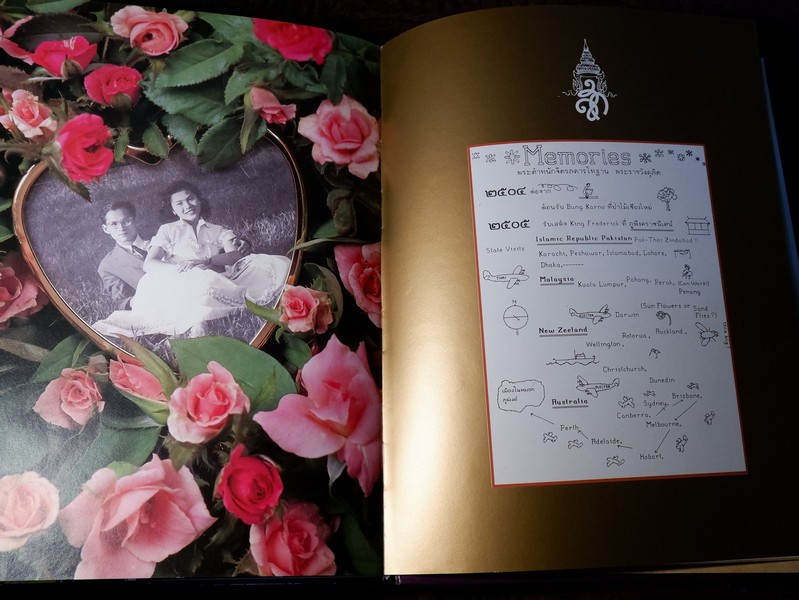 Memories
พระตำหนักจิตรลดารโหฐาน พระราชวังดุสิต
๒๕๐๔ ต่อจาก
ต้อนรับ Bung Karno ที่ป่าไม้เชียงใหม่
๒๕๐๕ รับเสด็จ King Frederick ที่ ภูพิงคราชนิเวศน์
Islamic Republic Pakistan Pak-Thai Zindabad !!
State Visits
Karachi, Peshawar, Islamabad, Lahore,
Dhaka,
Malaysia Kuala Lumpur, Pahang, Perak, Penang
(Sun Flowers or Sand Flies ?)
N
S
Darwin
New Zeeland Rotorua, Auckland,
Wellington,
Christchurch,
Dunedin
Sydney, Brisbane,
Australia
Canberra,
Melbourne,
Perth,
Adelaide,
Hobart,